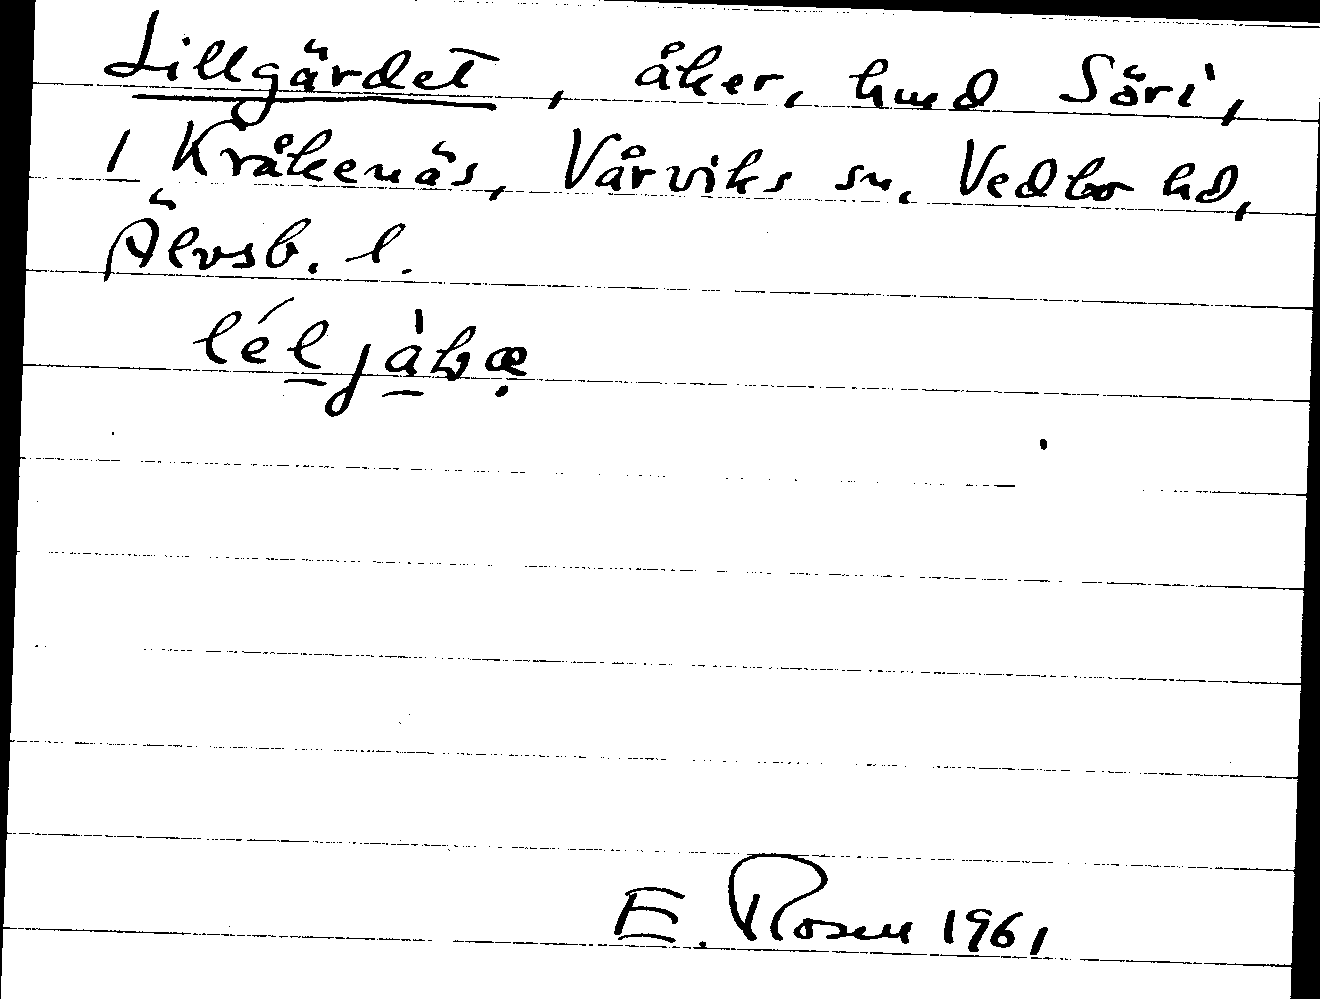 Lillgärdet, åker, hmd Söri,
1 Kråkenäs, Vårviks sn. Vedbo hd,
Älvsb. l.
E. Rosen 1961